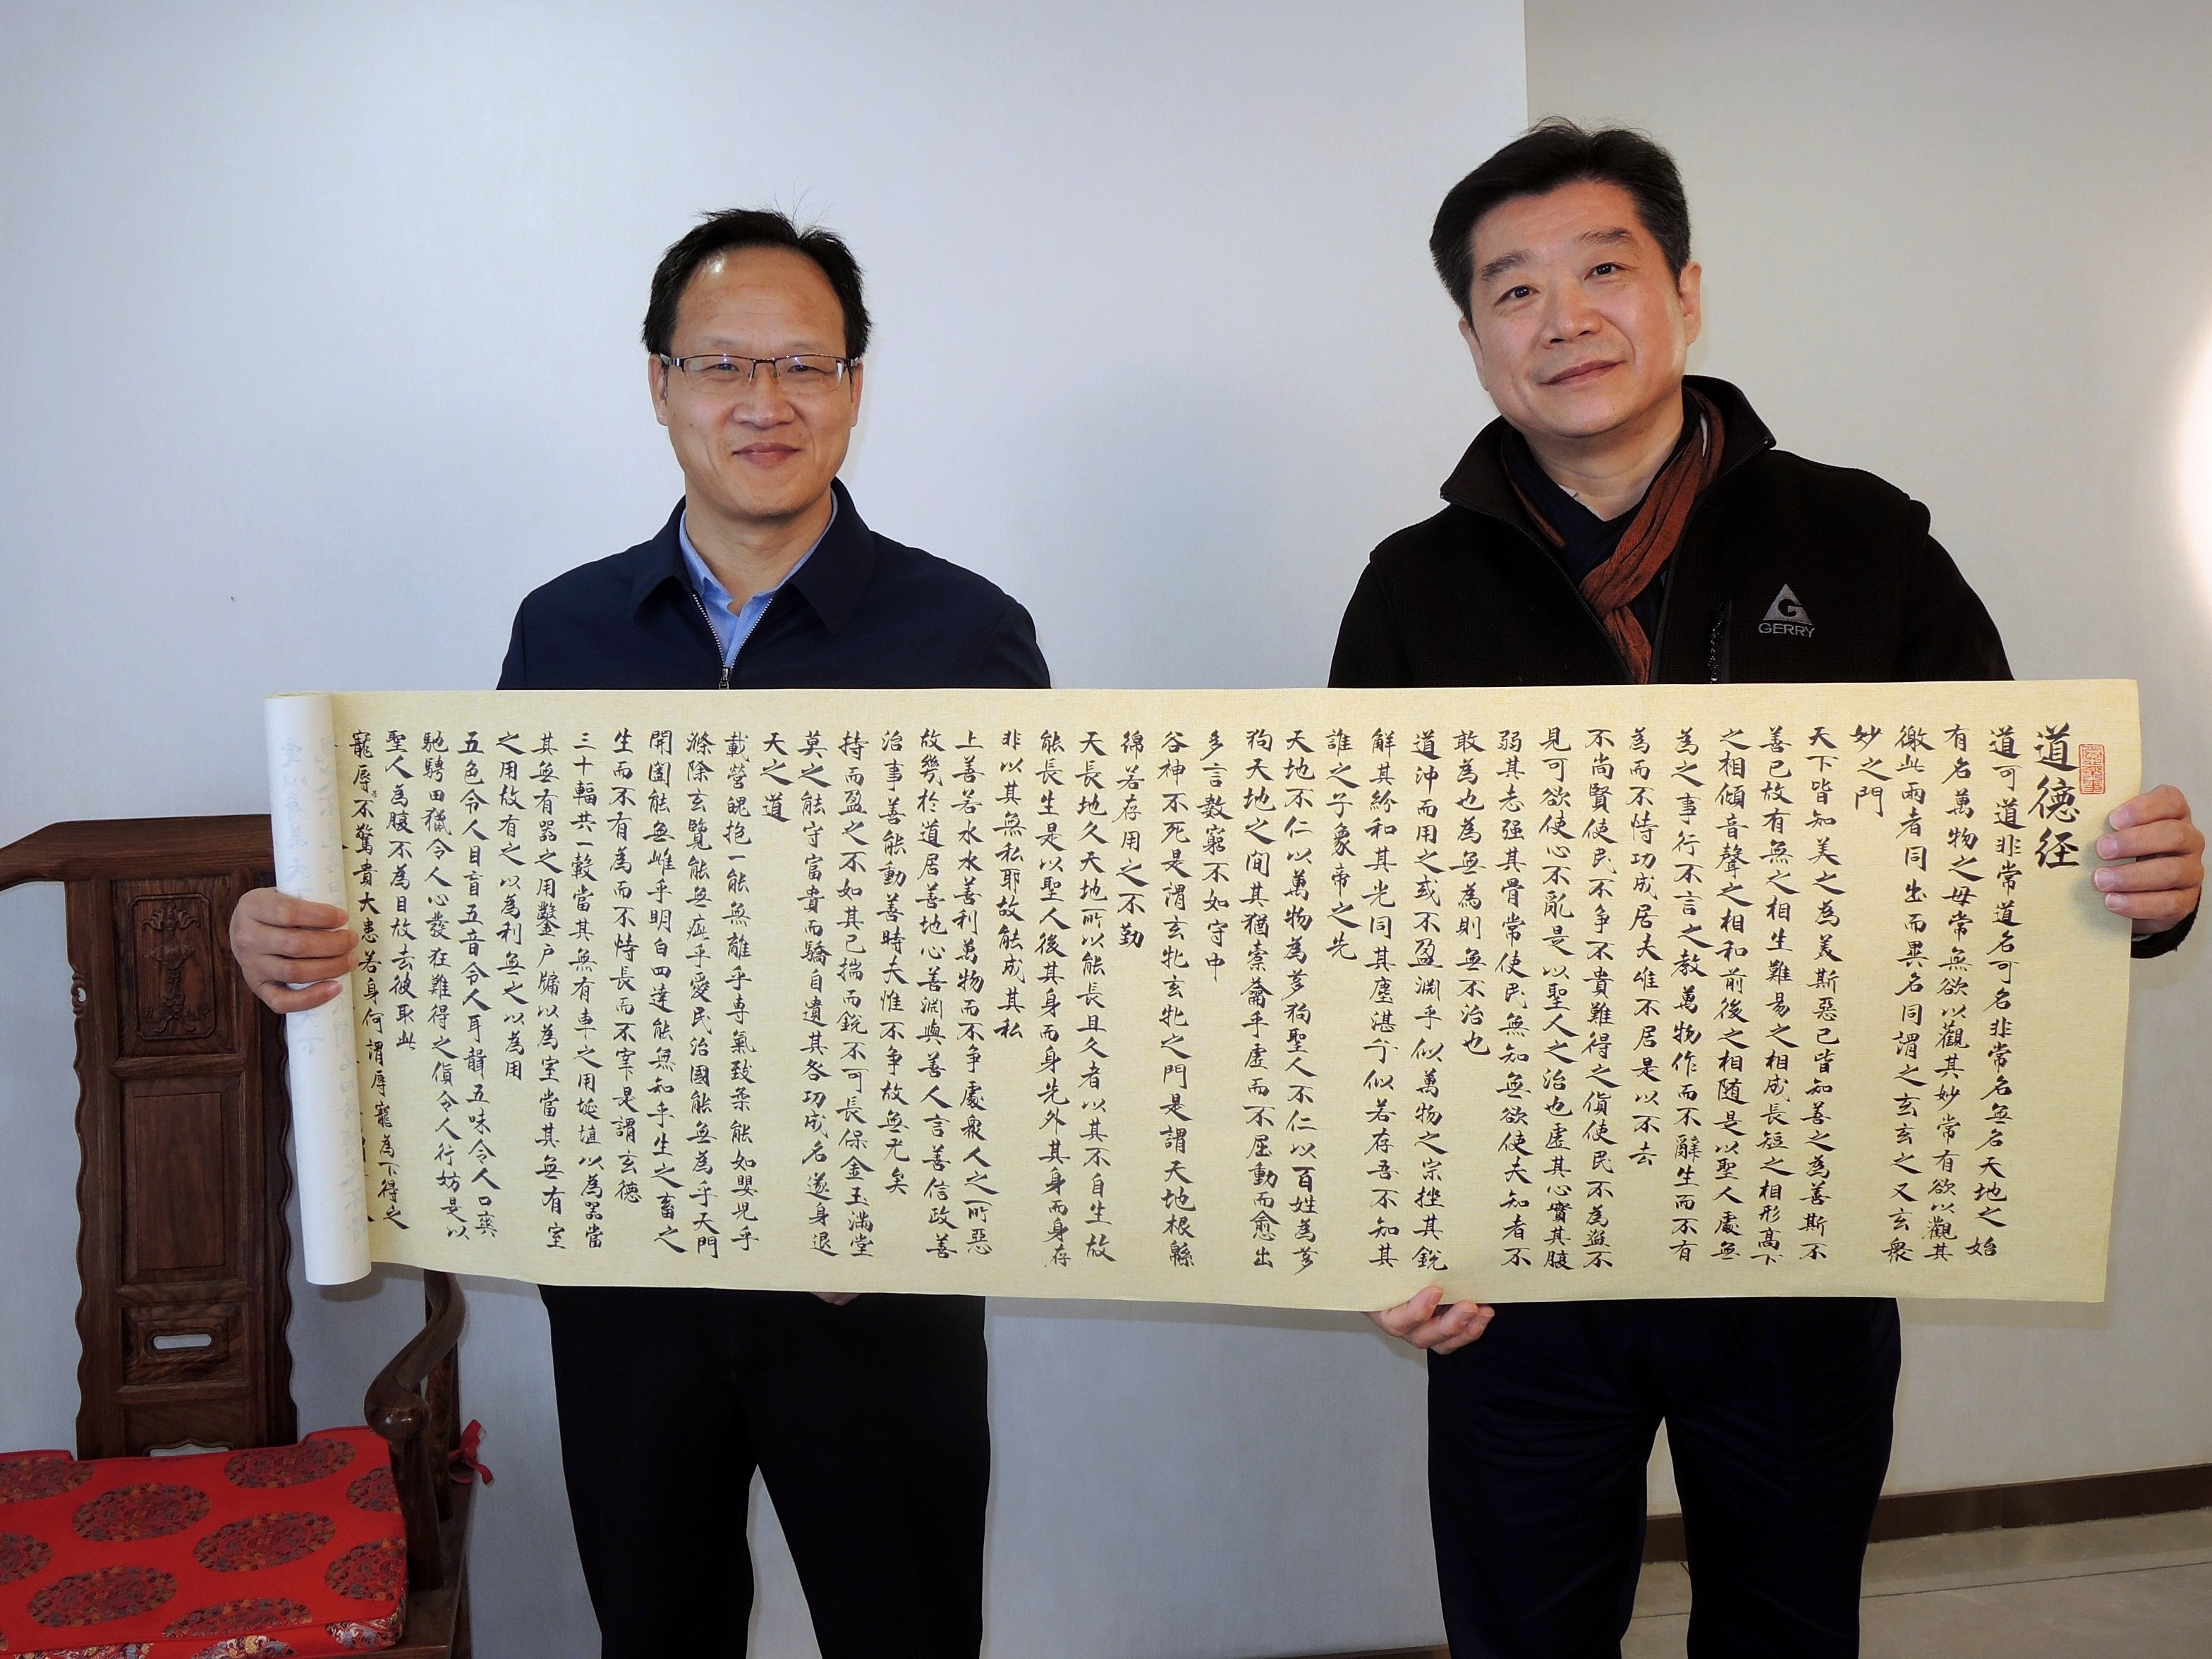 道德经
道可道非常道名可名非常名無名天地之始
有名萬物之母常無欲以觀其妙常有欲以觀其
徼此兩者同出而異名同謂之玄玄之又玄衆
妙之門
天下皆知美之為美斯惡已皆知善之為善斯不
善已故有無之相生難易之相成長短之相形高下
之相傾音聲之相和前後之相随是以聖人處無
為之事行不言之教萬物作而不辭生而不有
為而不恃功成居夫唯不居是以不去
不尚賢使民不争不貴難得之貨使民不為盗不
見可欲使心不亂是以聖人之治也虛其心實其腹
弱其志强其骨常使民無知無欲使夫知者不
敢為也為無為則無不治也
道沖而用之或不盈淵乎似萬物之宗挫其銳
解其紛和其光同其塵湛兮似若存吾不知其
誰之子象帝之先
天地不仁以萬物為芻狗聖人不仁以百姓為芻
狗天地之间其猶橐籥乎虛而不屈動而愈出
多言數窮不如守中
谷神不死是謂玄牝玄牝之門是謂天地根緜
綿若存用之不勤
天長地久天地所以能長且久者以其不自生故
能長生是以聖人後其身而身先外其身而身存
非以其無私耶故能成其私
上善若水水善利萬物而不争處衆人之所惡
故幾於道居善地心善淵與善人言善信政善
治事善能動善時夫惟不争故無尤矣
持而盈之不如其已揣而銳不可長保金玉滿堂
莫之能守富貴而驕自遺其咎功成名遂身退
天之道
載營魄抱一能無離乎専氣致柔能如嬰児乎
滌除玄覽能無疵乎愛民治國能無為乎天門
開闔能無雌乎明白四達能無知乎生之畜之
生而不有為而不恃長而不宰是謂玄德
三十輻共一轂當其無有車之用埏埴以為器當
其無有器之用鑿户牖以為室當其無有室
之用故有之以為利無之以為用
五色令人目盲五音令人耳聾五味令人口爽
馳騁田獵令人心發狂難得之貨令人行妨是以
聖人為腹不為目故去彼取此
寵辱若不驚貴大患若身何謂辱寵為下得之
GERRY